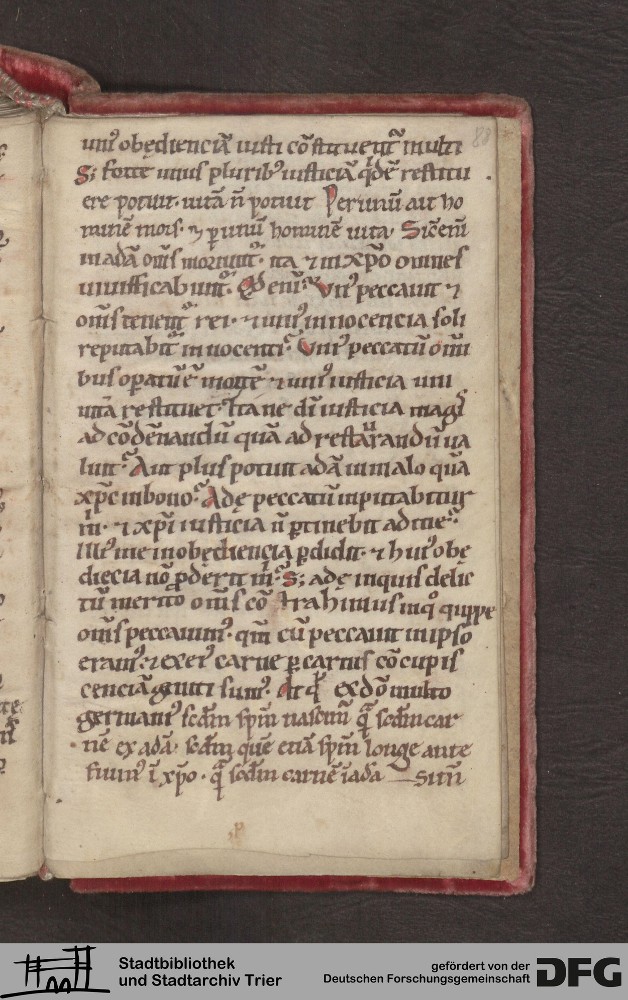 uni᷒ obędienciā iusti cōstituent᷑ multi
S; forte unus plurib᷒ iusticiā qͥdē restitu
ere potuit. uitā n̄ potuit Per unū ait ho
minē mors. ⁊ ꝑ unū hominē uita. Sic enī
in adā om̄s moriunt᷑. ita ⁊ in xp̄o omnes
uiuificabunt᷑. Qͥd enī? Vn᷒ peccauit ⁊
om̄s tenent᷑ rei. ⁊ uni᷒ innocencia soli
reputabit᷑ innocenti? Vni᷒ peccatū omī
bus opatū ē mortē ⁊ uni᷒ iusticia uni
uitā restituet. Ita ne dī iusticia magͥ
ad cōdēnandū quā ad restaurandū ua
luit? Aut plus potuit adā in malo quā
xp̄c in bono? Adę peccatū inputabitur
m̄. ⁊ xp̄i iusticia n̄ ꝑtinebit ad me?
Illi᷒ me inobędiencia ꝑdidit. ⁊ hui᷒ obę
diecia nō ꝓderit m̄? S; adę inquis delic
tū merito om̄s cōtrahimus inqͦ quippe
om̄s peccauim᷒. qm̄ cū peccauit in ipso
eram᷒. ⁊ ex ei᷒ carne ꝑ carnis cōcupis
cenciā geniti sum᷒. At qͥ ex dō multo
germani᷒ scd̄m spm̄ nascimur qͣ scd̄m car
nē ex adā. scd̄m quē etiā spm̄ longe ante
fuim᷒ ī xp̄o. qͣ scd̄m carnē ī adā Si tn̄
88
Stadtbibliothek
und Stadtarchiv Trier
gefördert von der
Deutschen Forschungsgemeinschaft
DFG